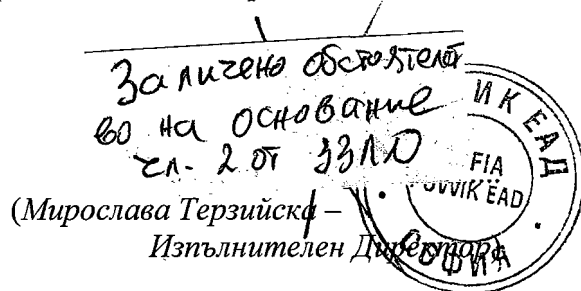 Заличено обстоятелст
во на основание
чл. 2 от ЗЗЛД
ИК ЕАД
FIA
ЕAD
СОФИЯ
(Мирослава Терзийска –
Изпълнителен Директор)